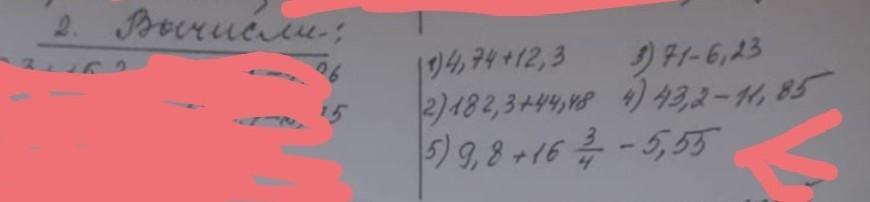 2. Вычисли:
1) 4,74+12,3
3) 71-6,23
2) 182,3+44,48
4) 43,2-11,85
5) 9,8+16 3/4 - 5,55